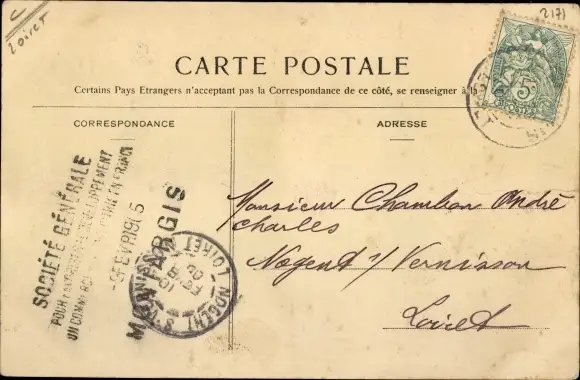 Loiret
2171
CARTE POSTALE
Certains Pays Etrangers n'acceptant pas la Correspondance de ce côté, se renseigner à la
CORRESPONDANCE
ADRESSE
SOCIÉTÉ GÉNÉRALE
POUR FAVORISER LE DÉVELOPPEMENT
DU COMMERCE EN FRANCE
9 FEVR 1905
MONTARGIS
NOGENT S/VERNISSON
LOIRET
10
FEVR
05
5c
POSTES
Monsieur Chambon André
Charles
Nogent s/ Vernisson
Loiret